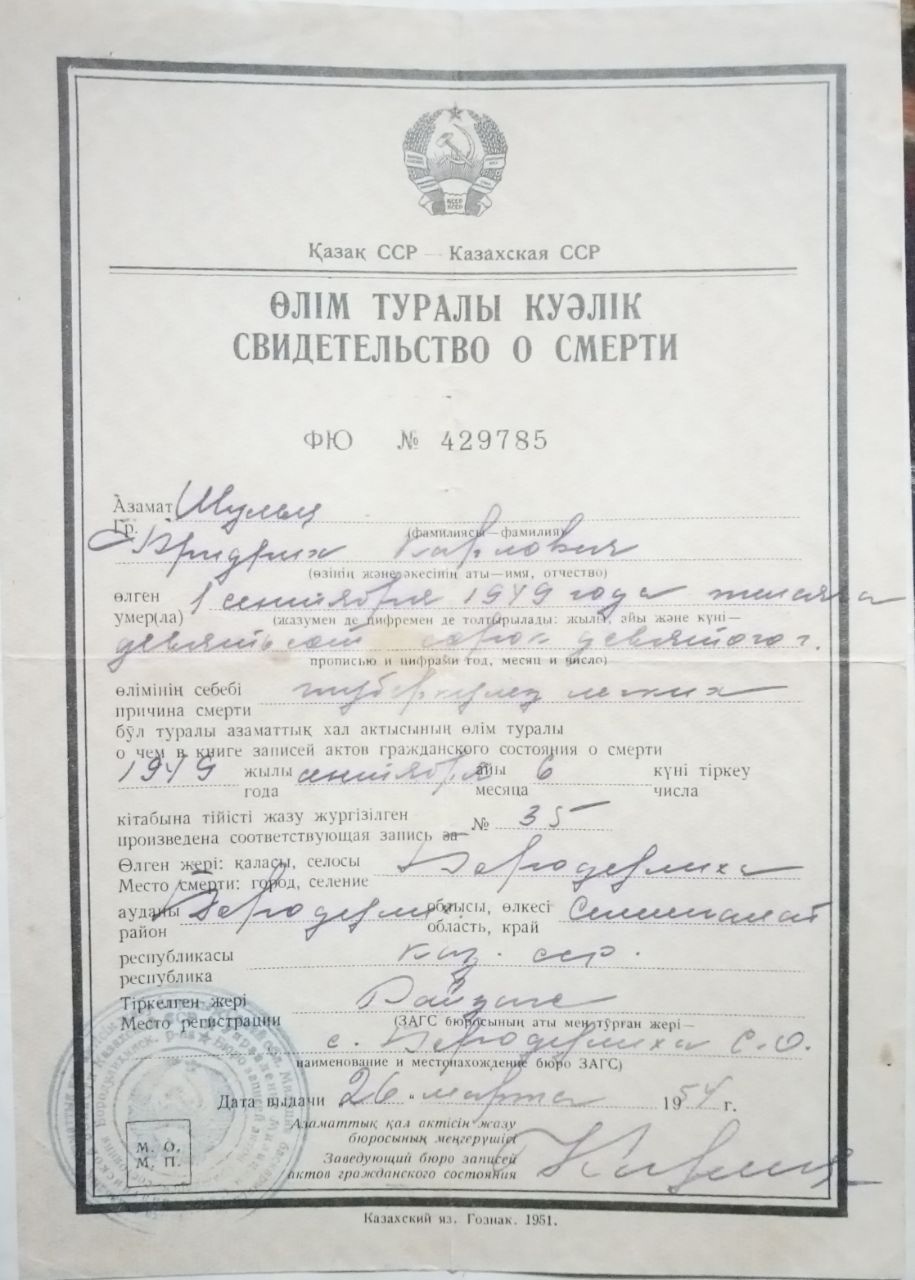 Қазақ ССР — Казахская ССР
ӨЛІМ ТУРАЛЫ КУӘЛІК
СВИДЕТЕЛЬСТВО О СМЕРТИ
ФЮ № 429785
Азамат Шульц
Гр. (фамилиясы—фамилия)
Фридрих Карлович
(өзінің және әкесінің аты—имя, отчество)
өлген 1 сентября 1949 года тысяча
умер(ла) (жазумен де цифремен де толтырылады: жылы, айы және күні—
девятьсот сорок девятого г.
прописью и цифрами год, месяц и число)
өлімінің себебі туберкулез легких
причина смерти
бұл туралы азаматтық хал актысының өлім туралы
о чем в книге записей актов гражданского состояния о смерти
1949 жылы сентября айы 6 күні тіркеу
года месяца числа
кітабына тійісті жазу жургізілген
произведена соответствующая запись за № 35
Өлген жері: қаласы, селосы Бородулиха
Место смерти: город, селение
ауданы Бородулих. облысы, өлкесі Семипалат
район область, край
республикасы Каз. сср.
республика
Тіркелген жері Райзагс
Место регистрации (ЗАГС бюросының аты мен тұрған жері—
с. Бородулиха С.О.
наименование и местонахождение бюро ЗАГС)
Дата выдачи 26 "марта 1954 г.
Азаматтық қал актісін жазу
бюросының меңгерушісі
Заведующий бюро записей
актов гражданского состояния
М. О.
М. П.
Казахский яз. Гознак. 1951.